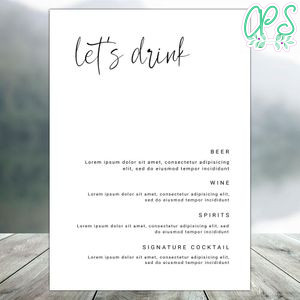 OPS
let's drink
BEER
Lorem ipsum dolor sit amet, consectetur adipisicing
elit, sed do eiusmod tempor incididunt
WINE
Lorem ipsum dolor sit amet, consectetur adipisicing
elit, sed do eiusmod tempor incididunt
SPIRITS
Lorem ipsum dolor sit amet, consectetur adipisicing elit,
sed do eiusmod tempor incididunt
SIGNATURE COCKTAIL
Lorem ipsum dolor sit amet, consectetur adipisicing elit,
sed do eiusmod tempor incididunt